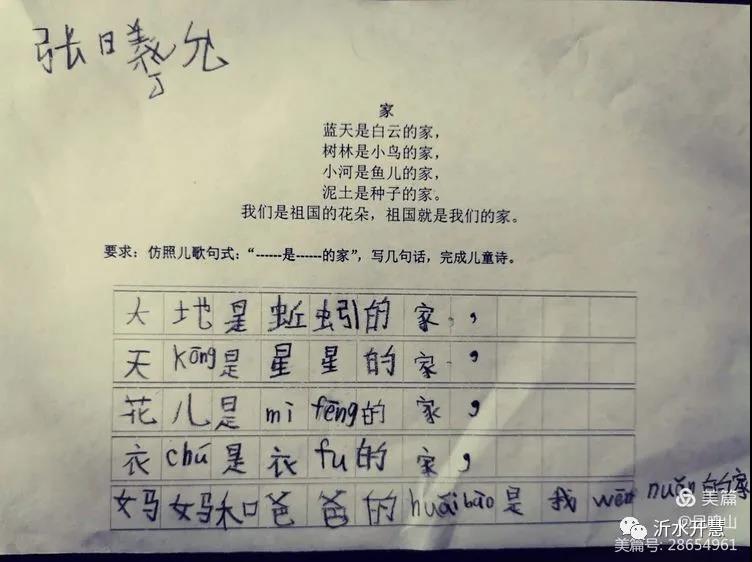 张曦允
家
蓝天是白云的家，
树林是小鸟的家，
小河是鱼儿的家，
泥土是种子的家。
我们是祖国的花朵，祖国就是我们的家。
要求：仿照儿歌句式：“------是------的家”，写几句话，完成儿童诗。
大地是蚯蚓的家，
天kōng是星星的家，
花儿是mì fēng的家，
衣chú是衣fu的家，
妈妈和爸爸的huáibào是我wēn nuǎn的家
美篇
沂水开慧
美篇号: 28654961